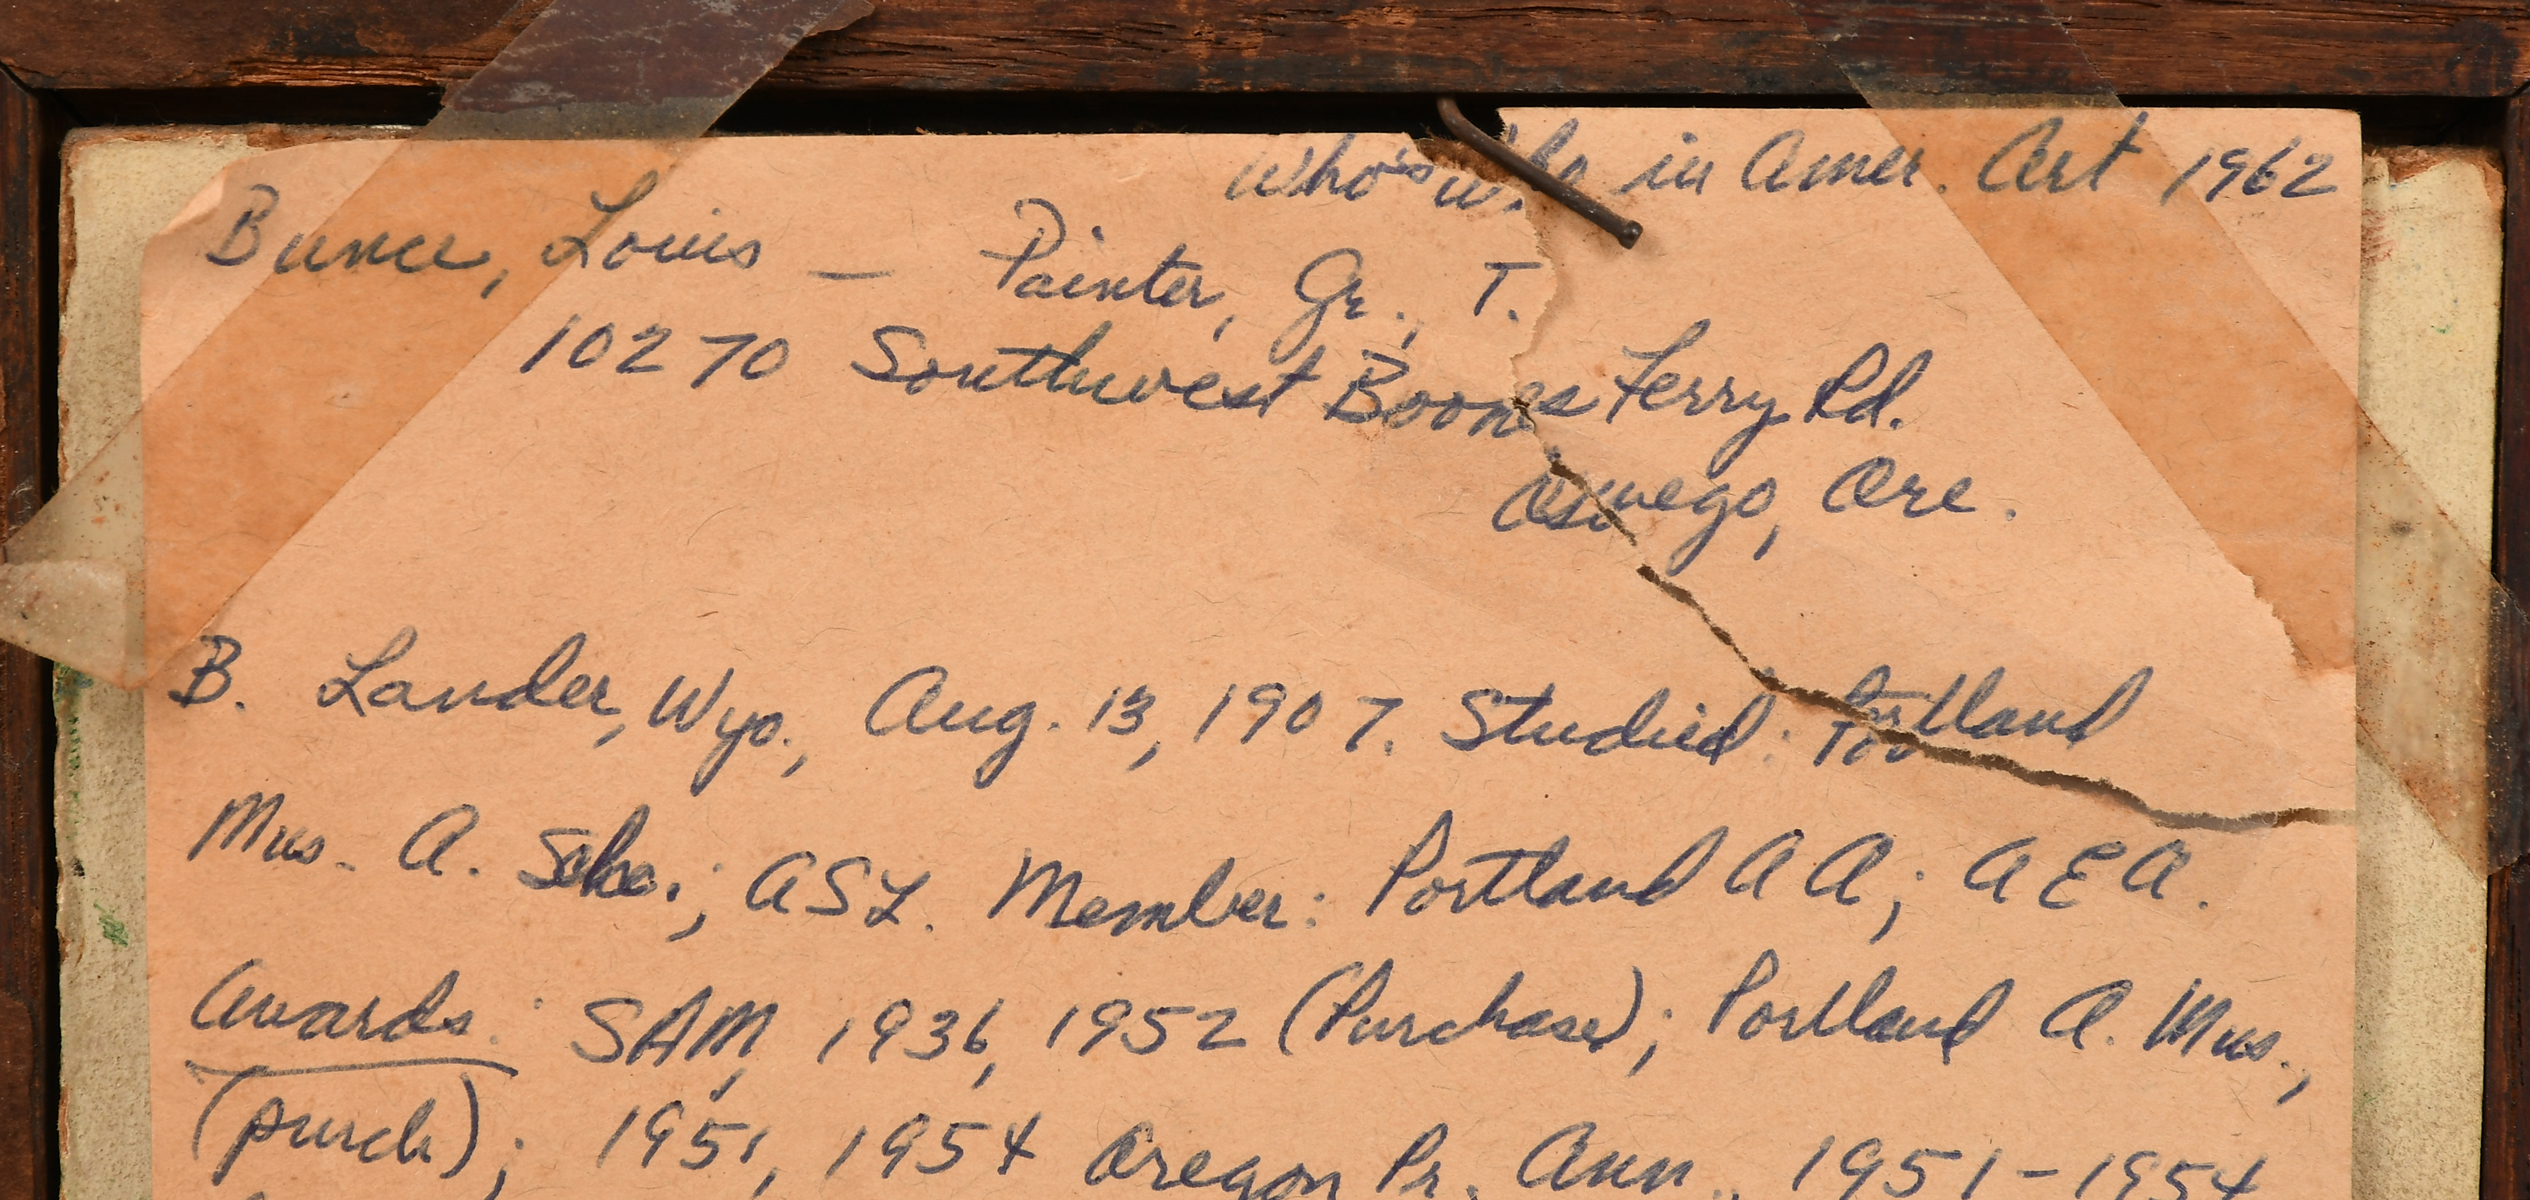 Who's Who in Amer. Art 1962
Bunce, Louis — Painter, Gr., T.
10270 Southwest Boones Ferry Rd.
Oswego, Ore.
B. Lander, Wyo., Aug. 13, 1907. Studied: Portland
Mus. A. Sch.; ASL. Member: Portland AA; AEA.
Awards: SAM, 1936, 1952 (Purchase); Portland A. Mus.,
(purch); 1951, 1954 Oregon Pr. Ann., 1951-1954